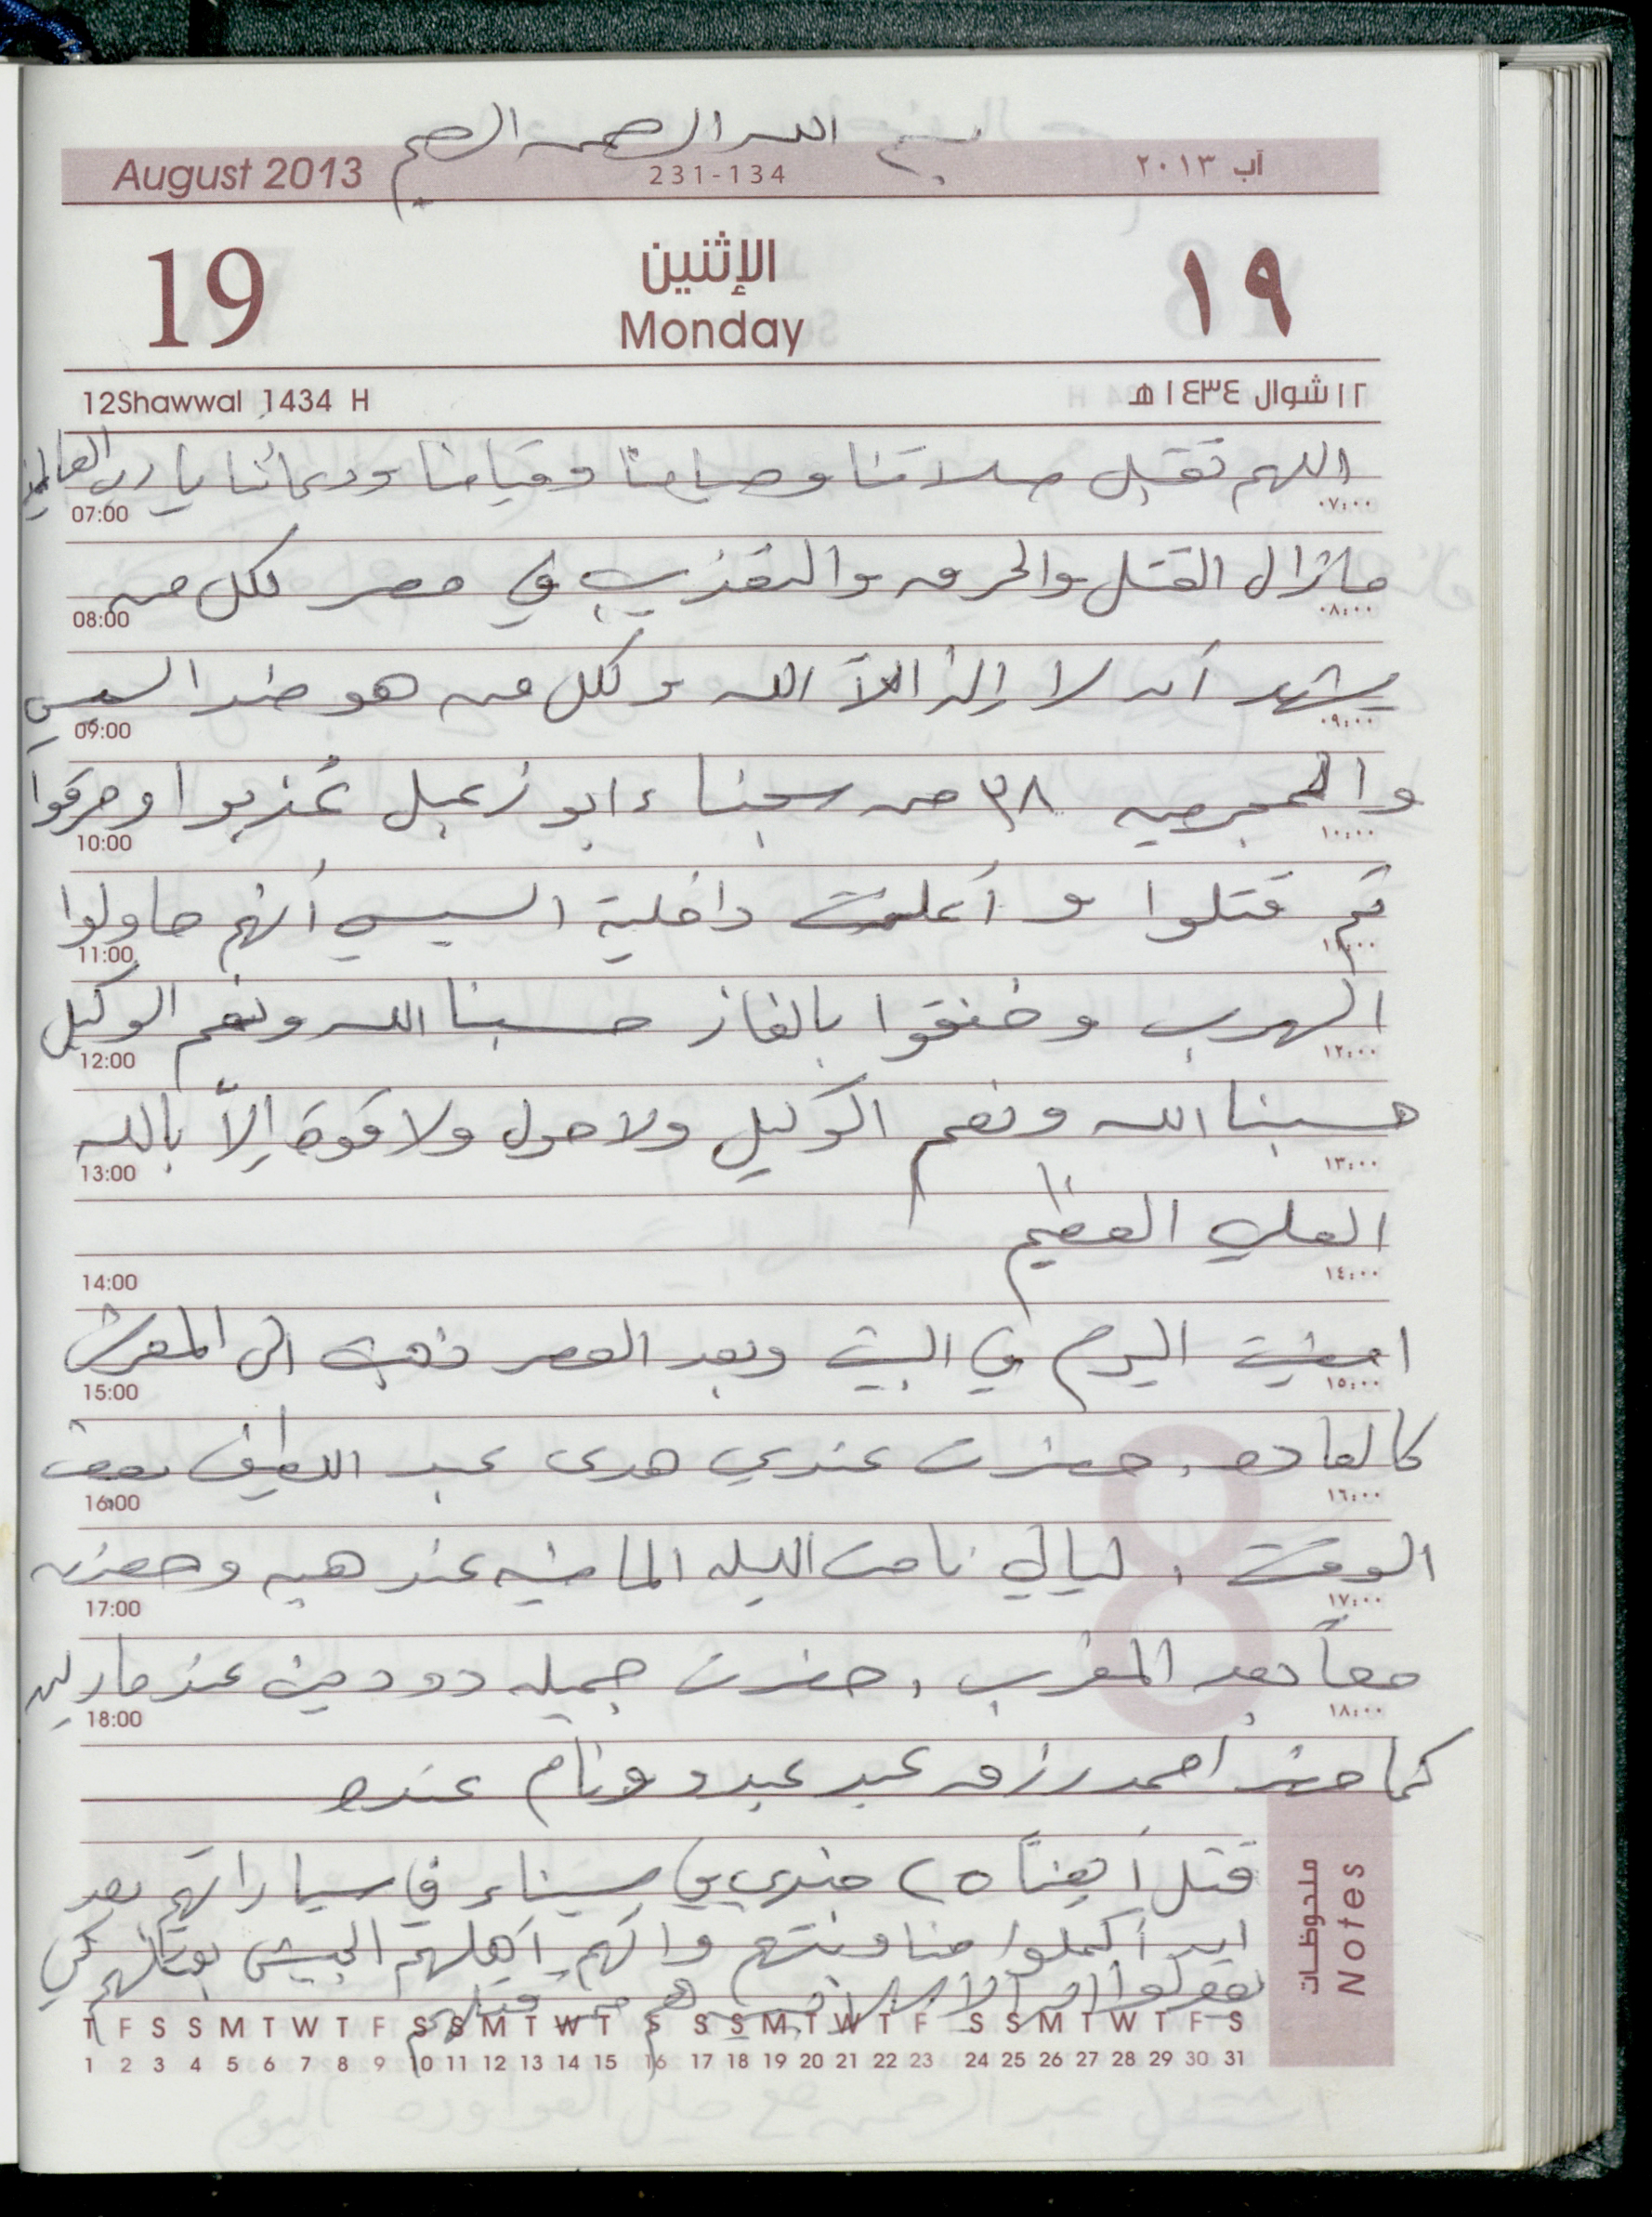 بسم الله الرحمن الرحيم
August 2013 231-134 آب ٢٠١٣
19 الإثنين ١٩
Monday
12Shawwal 1434 H ١٢ شوال ١٤٣٤ هـ
اللهم تقبل صلاتنا وصيامنا وقيامنا ودعائنا يا رب العالمين
07:00 ٠٧:٠٠
مازال القتل والحرق والتعذيب في مصر لكل من
08:00 ٠٨:٠٠
يشهد أن لا إله الاّ الله ولكل من هو ضد السيسي
09:00 ٠٩:٠٠
والمجرمين ٣٨ من سجناء ابو زعبل عُذبوا وحرقوا
10:00 ١٠:٠٠
ثم قتلوا و أعلنت داخلية السيسي أنهم حاولوا
11:00 ١١:٠٠
الهرب وخنقوا بالغاز حسبنا الله ونعم الوكيل
12:00 ١٢:٠٠
حسبنا الله ونعم الوكيل ولا حول ولا قوة إلاّ بالله
13:00 ١٣:٠٠
العلي العظيم
14:00 ١٤:٠٠
امضيت اليوم في البيت وبعد العصر ذهبت الى المعرش
15:00 ١٥:٠٠
كالعاده، حضرت عندي هدى عبد اللطيف بعض
16:00 ١٦:٠٠
الوقت، ليالي نامت الليله الماضيه عند هبه وحضرن
17:00 ١٧:٠٠
معاً بعد المغرب، حضرت جميله دودين عند مارلين
18:00 ١٨:٠٠
كما حضر احمد رزق عبد عبدو ونام عنده
ملحوظات Notes
قتل أيضاً ٢٥ جندي في سيناء في سياراتهم بعد
ان أكملوا مناوبتهم وانهم أهلهم الجيش بقتلهم كي
يقولوا ان الاسلاميين هم من قتلهم
T F S S M T W T F S S M T W T F S S M T W T F S S M T W T F S
1 2 3 4 5 6 7 8 9 10 11 12 13 14 15 16 17 18 19 20 21 22 23 24 25 26 27 28 29 30 31